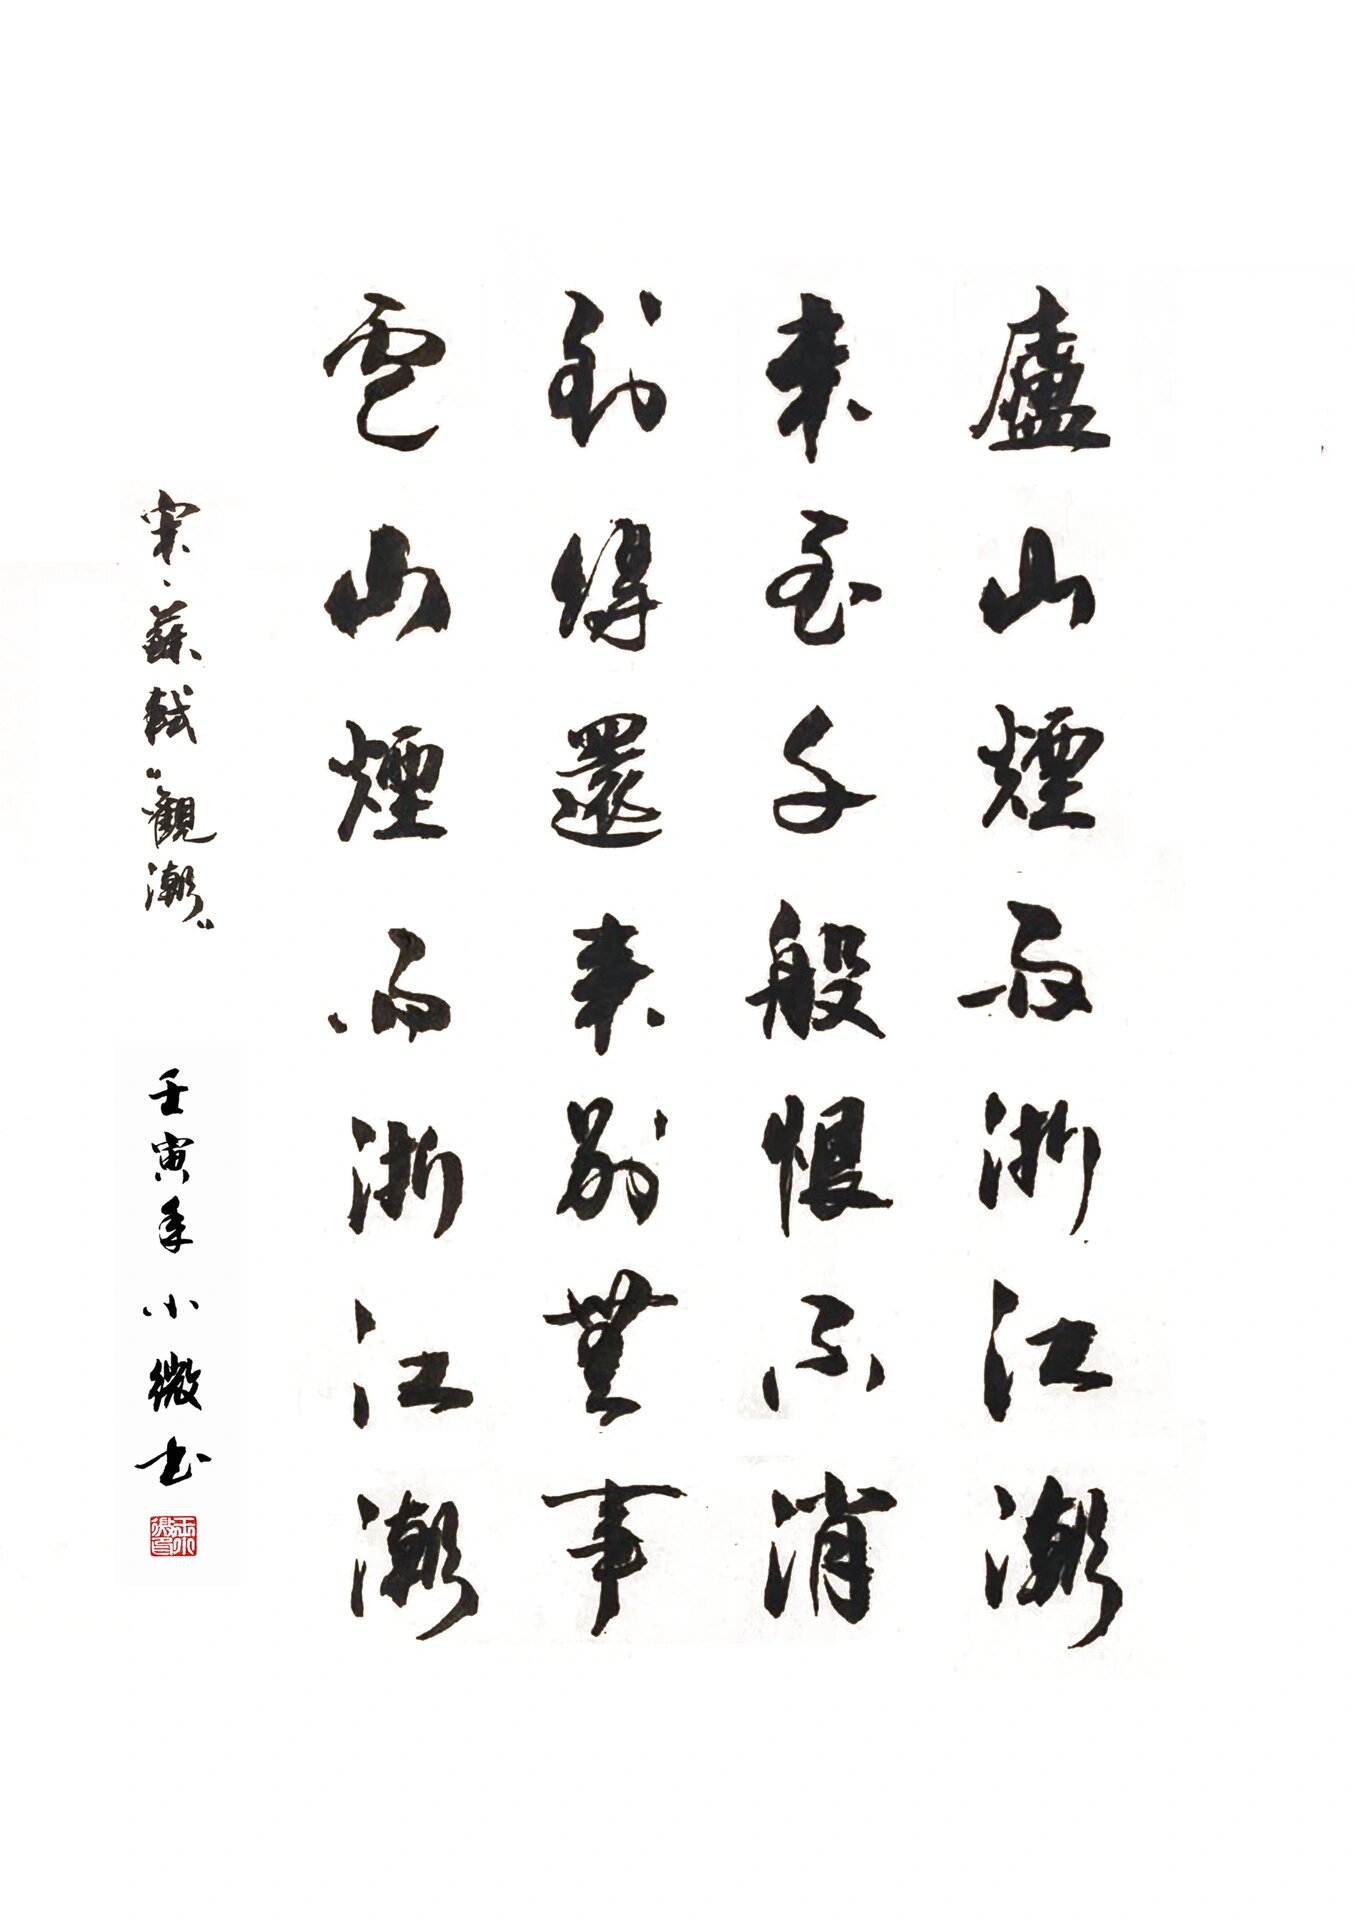 廬山煙雨浙江潮
未至千般恨不消
到得還來別無事
廬山煙雨浙江潮
宋、蘇軾“觀潮” 壬寅年 小微书